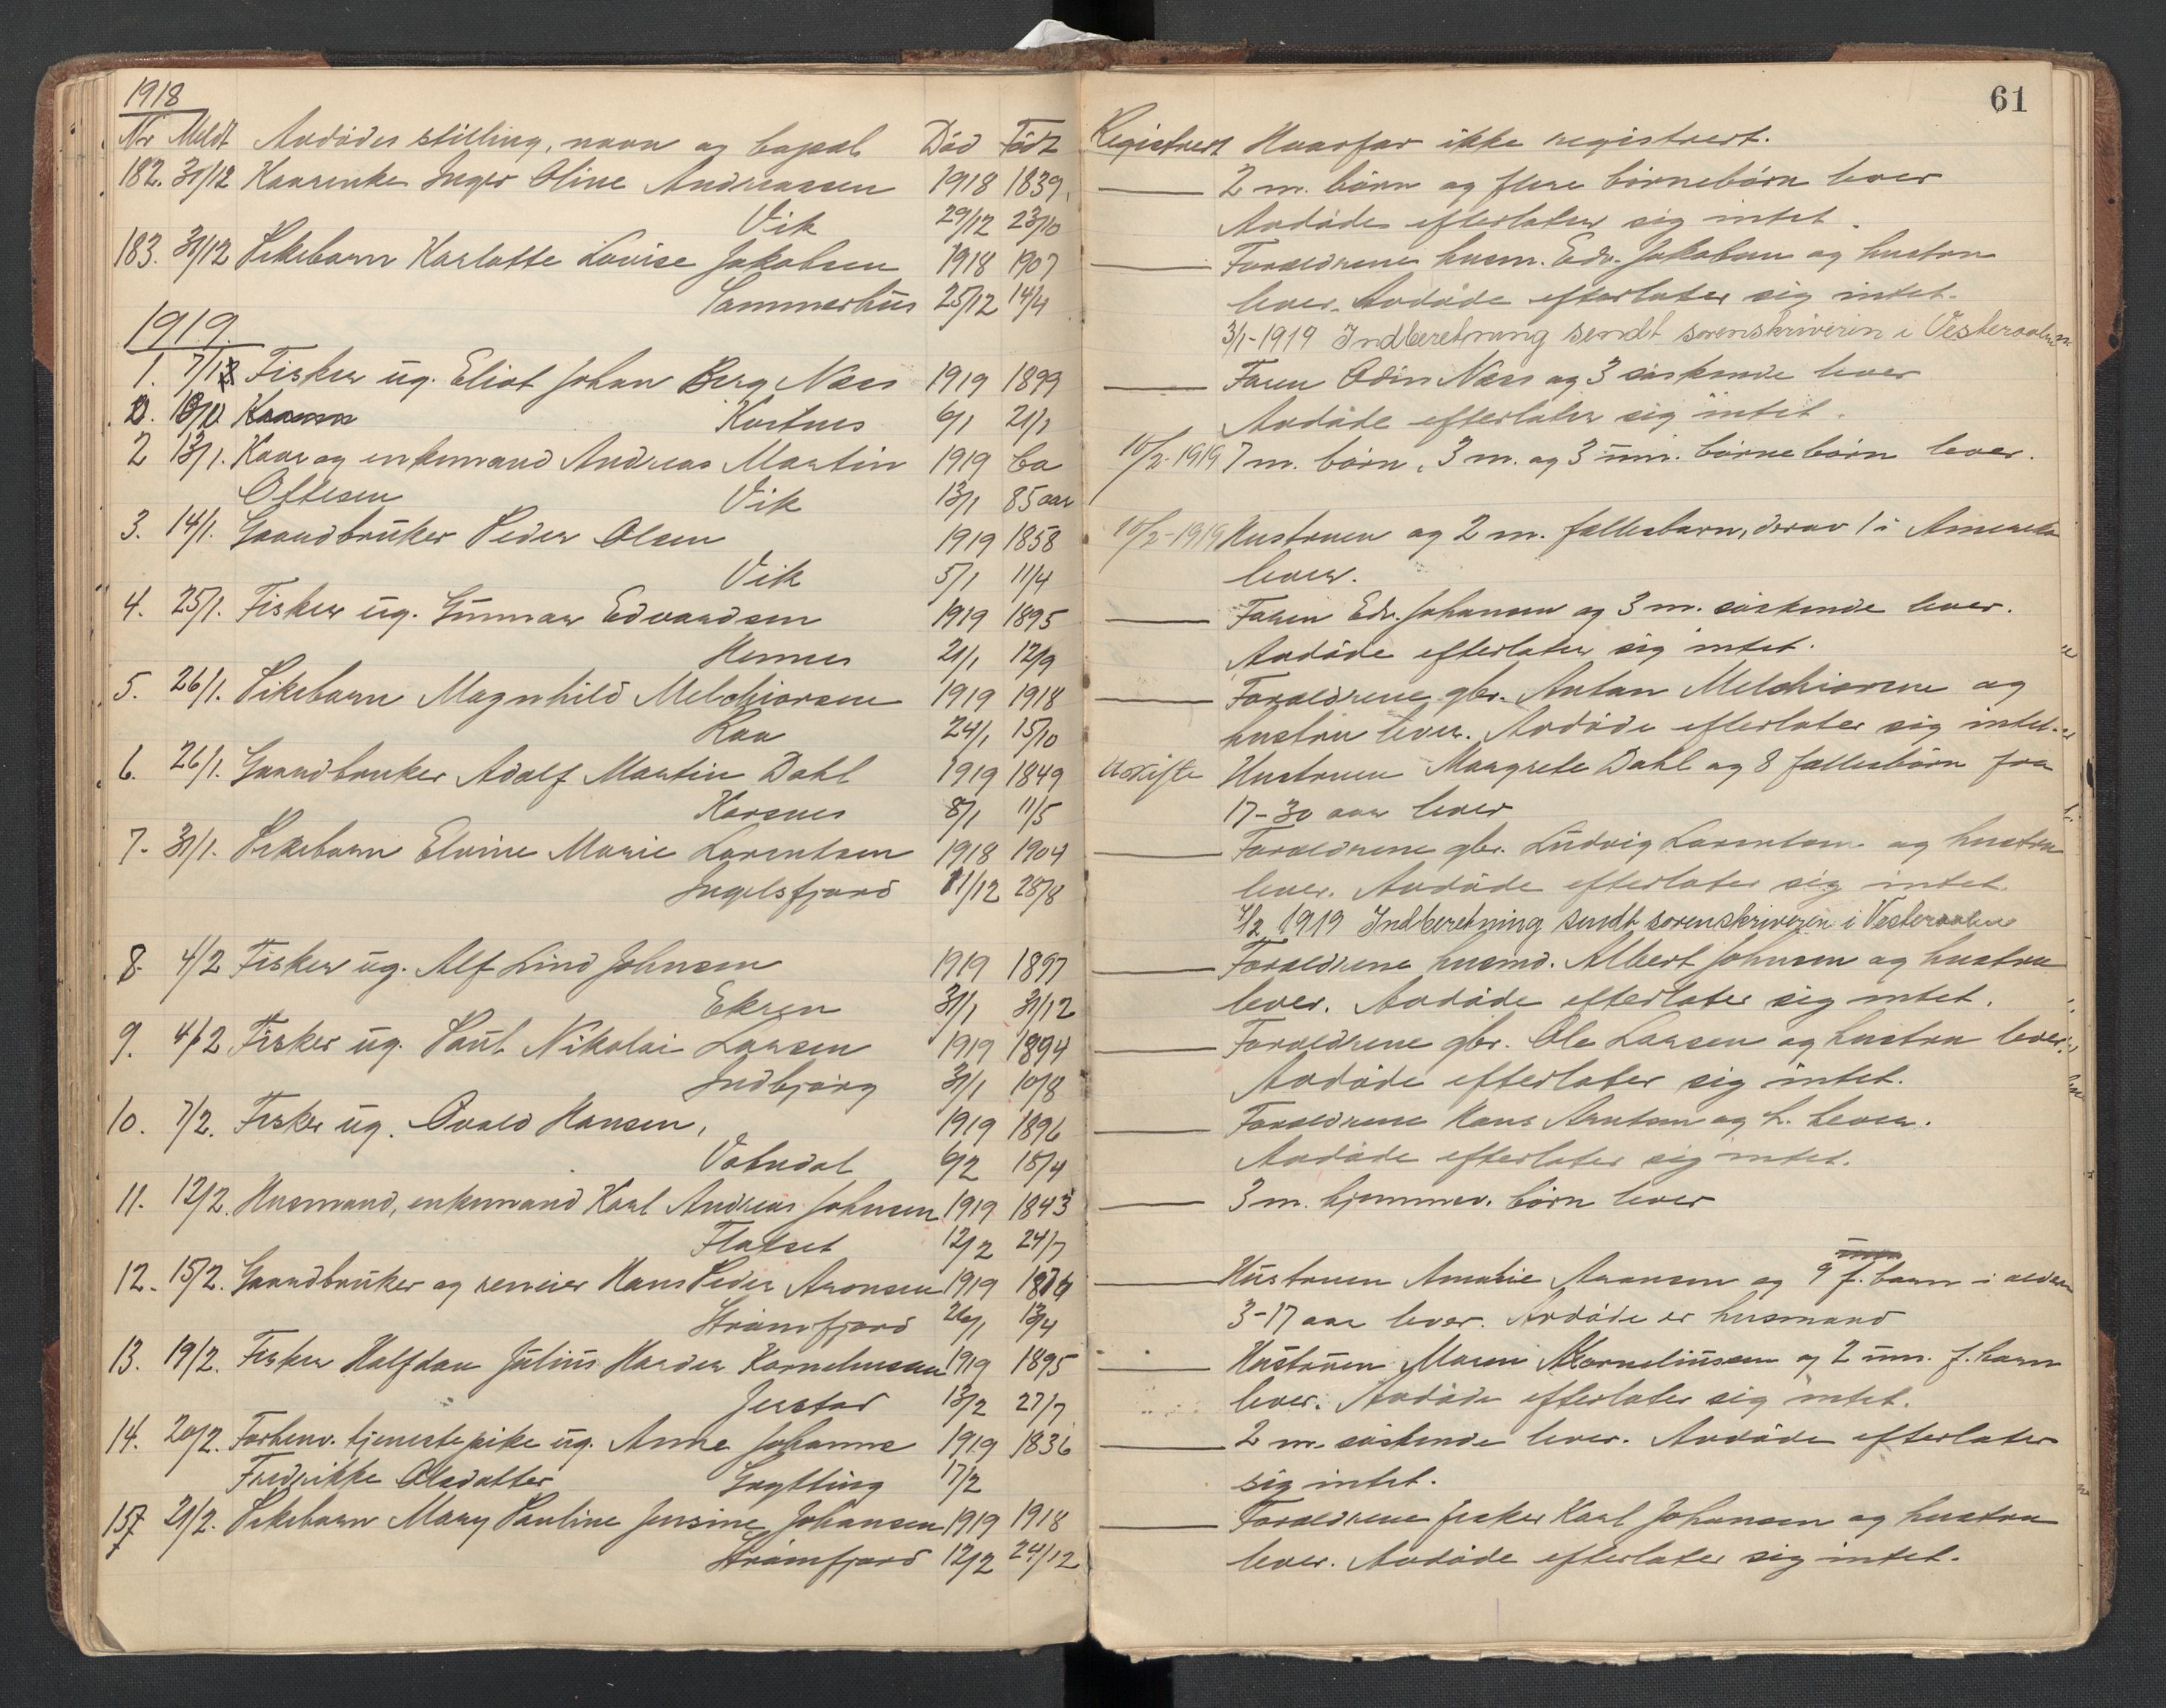 1918
Nr Meldt Avdødes stilling, navn og bopæl Død Født
182. 31/12 Kaarenke Inger Oline Andreassen 1918 1839
Vik 29/12 23/10
183. 31/12 Pikebarn Karlotte Lovise Jakobsen 1918 1907
Sommerhus 25/12 14/4
1919.
1. 7/1 Fisker ug. Eliot Johan Berg Næss 1919 1899
Kortnes 6/1 21/1
2 13/1. Kaar og enkemand Andreas Martin 1919 ca
Oftesen Vik 13/1 85 aar
3. 14/1. Gaardbruker Peder Olsen 1919 1858
Vik 5/1 11/4
4. 25/1. Fisker ug. Gunnar Edvardsen 1919 1895
Hennes 21/1 12/9
5. 26/1. Pikebarn Magnhild Melchiorsen 1919 1918
Raa 24/1 15/10
6. 26/1. Gaardbruker Adolf Martin Dahl 1919 1849
Korsnes 8/1 11/5
7. 31/1. Pikebarn Elvine Marie Lorentsen 1918 1904
Ingelsfjord 11/12 28/8
8. 4/2 Fisker ug. Alf Lind Johnsen 1919 1897
Ekren 31/1 31/12
9. 4/2 Fisker ug. Paul Nikolai Larsen 1919 1894
Indbjörg 31/1 10/8
10. 7/2. Fisker ug. Ovald Hansen, 1919 1896
Vatndal 6/2 15/4
11. 12/2. Husmand, enkemand Karl Andreas Johnsen 1919 1843
Flatset 12/2 24/7
12. 15/2. Gaardbruker og Hans Peder Aronsen 1919
Strömfjord 26/1 13/4
13. 19/2. Fisker Halfdan Julius Harder Korneliussen 1919 1895
Jerstad 13/2 27/7
14. 20/2. Forhenv. tjenestepike ug. Anne Johanna 1919 1836
Fredrikke Olsdatter Gryttting 17/2
15 21/2. Pikebarn Mary Pauline Jensine Johansen 1919 1918
Strömfjord 12/2 24/12
61
Registrert Hvorfor ikke registrert.
2 m. börn og flere börnebörn lever
Avdöde efterlater sig intet.
Forældrene husm. Edv. Jakobsen og hustru
lever. Avdöde efterlater sig intet.
3/1-1919 Indberetning sendt sorenskriveren i Vesteraalen
Faren Odin Næss og 3 söskende lever
Avdöde efterlater sig intet.
10/2-1919 7 m. börn, 3 m. og 3 um. börnebörn lever.
10/2-1919 Hustruen og 2 m. fællesbarn, derav 1 i Amerika
lever.
Faren Edv. Johansen og 3 m. söskende lever.
Avdöde efterlater sig intet.
Forældrene gbr. Anton Melchiorsen og
hustru lever. Avdöde efterlater sig intet.
Uskifte Hustruen Margrete Dahl og 8 fællesbörn fra
17-30 aar lever
Forældrene gbr. Ludvig Lorentsen og hustru
lever. Avdöde efterlater sig intet.
4/2 1919 Indberetning sendt sorenskriveren i Vesteraalen
Forældrene husmd. Albert Johnsen og hustru
lever. Avdöde efterlater sig intet.
Forældrene gbr. Ole Larsen og hustru lever.
Avdöde efterlater sig intet.
Forældrene Hans Arntsen og h. lever.
Avdöde efterlater sig intet.
3 m. hjemmev. börn lever
Hustruen Amalie Aronsen og 9 f. barn i alder
3-17 aar lever. Avdöde er husmand
Hustruen Maren Korneliussen og 2 um. f. barn
lever. Avdöde efterlater sig intet.
2 m. söskende lever. Avdöde efterlater
sig intet.
Forældrene fisker Karl Johansen og hustru
lever. Avdöde efterlater sig intet.